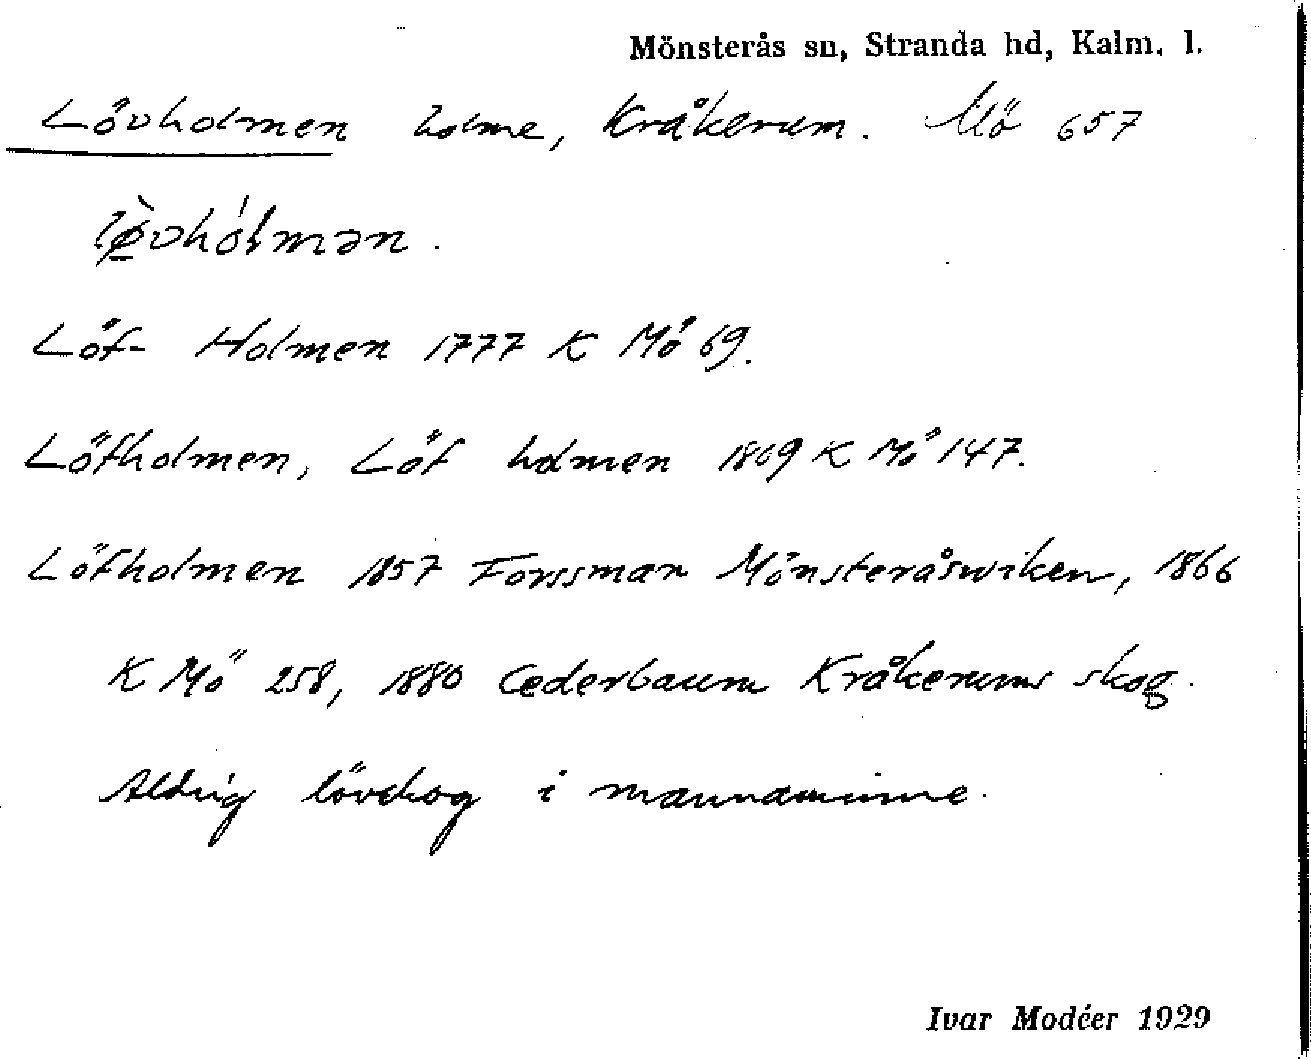 Mönsterås sn, Stranda hd, Kalm. l.
Lövholmen holme, Kråkerum. Mö 657
lø̀vhólmən.
Löf- Holmen 1777 K Mö 69.
Löfholmen, Löf holmen 1809 K Mö 147.
Löfholmen 1857 Forssman Mönsteråswiken, 1866
K Mö 258, 1880 Cederbaum Kråkerums skog.
Aldrig lövskog i mannaminne.
Ivar Modéer 1929